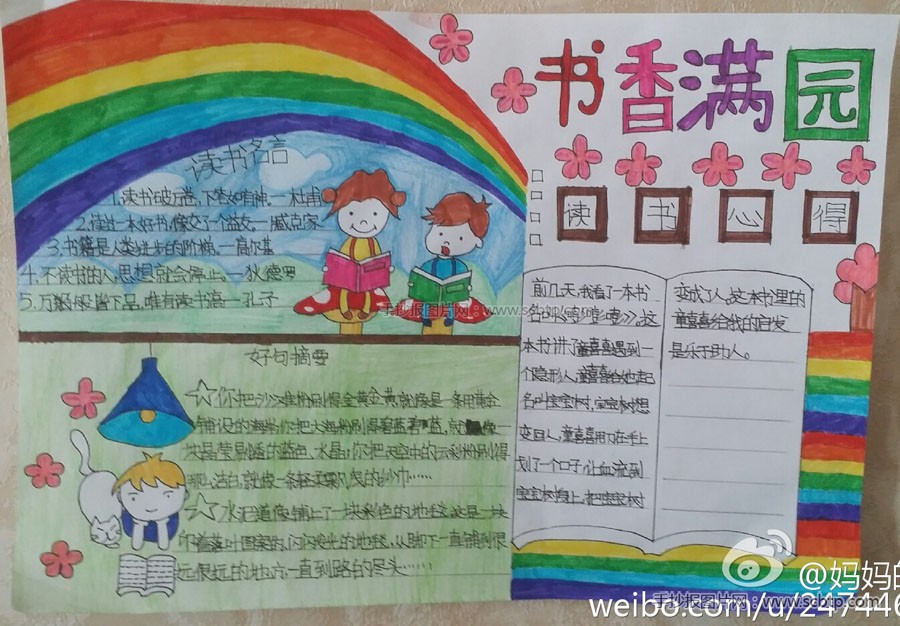 书香满园
读书心得
读书名言
1.读书破万卷,下笔如有神。—杜甫
2.读过一本好书,像交了个益友。—臧克家
3.书籍是人类进步的阶梯。—高尔基
4.不读书的人,思想就会停止。—狄德罗
5.万般皆下品,唯有读书高—孔子
好句摘要
☆你把沙滩粉刷得金黄金黄就像是一条用黄金
铺设的海岸;你把大海粉刷得碧蓝碧蓝,就像一
块晶莹剔透的蓝色水晶;你把天空中的云彩粉刷得
那么洁白,就像一条轻柔的纱巾……
☆水泥道像铺上了一块彩色的地毯这是一块
印着落叶图案的,闪闪发光的地毯,从脚下一直铺到很
远很远的地方,一直到路的尽头……
前几天,我看了一本书
名叫《嘭嘭嘭》,这
本书讲了童喜喜遇到一
个隐形人,童喜喜给她起
名叫宝宝树,宝宝树想
变回人,童喜喜用刀在手上
划了一个口子,让血流到
宝宝树身上,把宝宝树
变成了人,这本书里的
童喜喜给我的启发
是乐于助人。
手抄报图片网:www.scbtp.com
@妈妈的
手抄报图片网:www.scbtp.com
weibo.com/u/247446